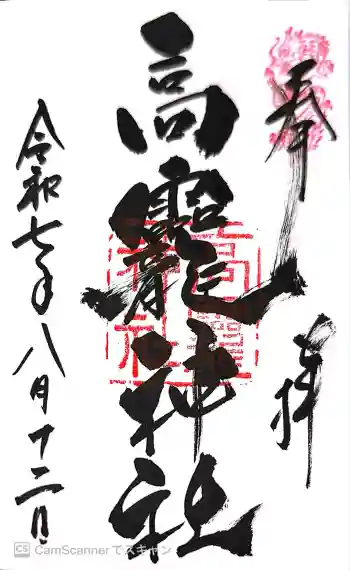 奉拝
高龗神社
令和七年八月十二日
CS CamScannerでスキャン